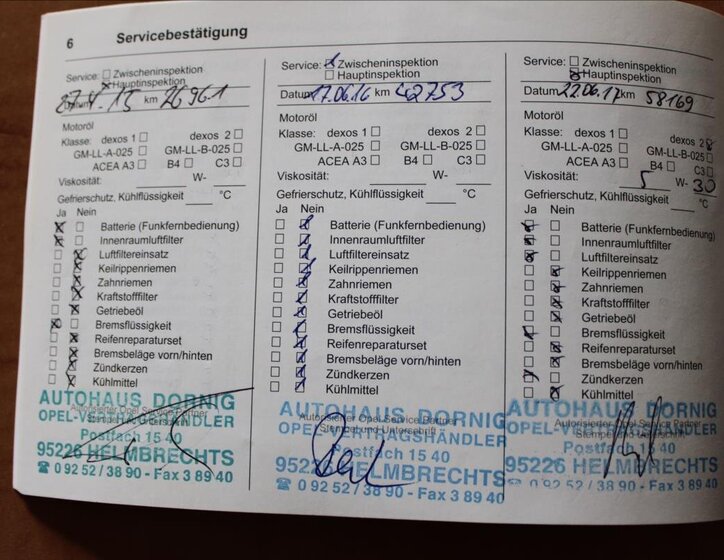 6 Servicebestätigung
Service: Zwischeninspektion
Hauptinspektion
Datum 27.4.15 km 26961
Motoröl
Klasse: dexos 1 dexos 2
GM-LL-A-025 GM-LL-B-025
ACEA A3 B4 C3
Viskosität: W-
Gefrierschutz, Kühlflüssigkeit °C
Ja Nein
Batterie (Funkfernbedienung)
Innenraumluftfilter
Luftfiltereinsatz
Keilrippenriemen
Zahnriemen
Kraftstofffilter
Getriebeöl
Bremsflüssigkeit
Reifenreparaturset
Bremsbeläge vorn/hinten
Zündkerzen
Kühlmittel
AUTOHAUS DORNIG
Autorisierter Opel Service Partner
OPEL-VERTRAGSHÄNDLER
Stempel und Unterschrift
Postfach 15 40
95226 HELMBRECHTS
☎ 0 92 52 / 38 90 - Fax 3 89 40
Service: Zwischeninspektion
Hauptinspektion
Datum 17.06.16 km 42753
Motoröl
Klasse: dexos 1 dexos 2
GM-LL-A-025 GM-LL-B-025
ACEA A3 B4 C3
Viskosität: W-
Gefrierschutz, Kühlflüssigkeit °C
Ja Nein
Batterie (Funkfernbedienung)
Innenraumluftfilter
Luftfiltereinsatz
Keilrippenriemen
Zahnriemen
Kraftstofffilter
Getriebeöl
Bremsflüssigkeit
Reifenreparaturset
Bremsbeläge vorn/hinten
Zündkerzen
Kühlmittel
AUTOHAUS DORNIG
Autorisierter Opel Service Partner
OPEL-VERTRAGSHÄNDLER
Stempel und Unterschrift
Postfach 15 40
95226 HELMBRECHTS
☎ 0 92 52 / 38 90 - Fax 3 89 40
Service: Zwischeninspektion
Hauptinspektion
Datum 22.06.17 km 58169
Motoröl
Klasse: dexos 1 dexos 2
GM-LL-A-025 GM-LL-B-025
ACEA A3 B4 C3
Viskosität: 5 W- 30
Gefrierschutz, Kühlflüssigkeit °C
Ja Nein
Batterie (Funkfernbedienung)
Innenraumluftfilter
Luftfiltereinsatz
Keilrippenriemen
Zahnriemen
Kraftstofffilter
Getriebeöl
Bremsflüssigkeit
Reifenreparaturset
Bremsbeläge vorn/hinten
Zündkerzen
Kühlmittel
AUTOHAUS DORNIG
Autorisierter Opel Service Partner
OPEL-VERTRAGSHÄNDLER
Stempel und Unterschrift
Postfach 15 40
95226 HELMBRECHTS
☎ 0 92 52 / 38 90 - Fax 3 89 40